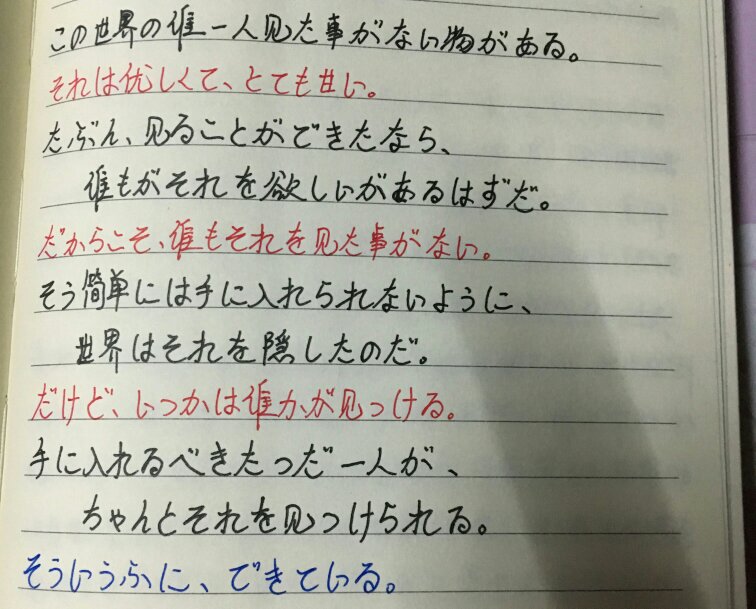 この世界の誰一人见た事がない物がある。
それは优しくて、とても甘い。
たぶん、见ることができたなら、
誰もがそれを欲しいがあるはずだ。
だからこそ、誰もそれを见た事がない。
そう簡単には手に入れられないように、
世界はそれを隠したのだ。
だけど、いつかは誰かが见つける。
手に入れるべきたっだ一人が、
ちゃんとそれを见つけられる。
そうにうふに、できている。